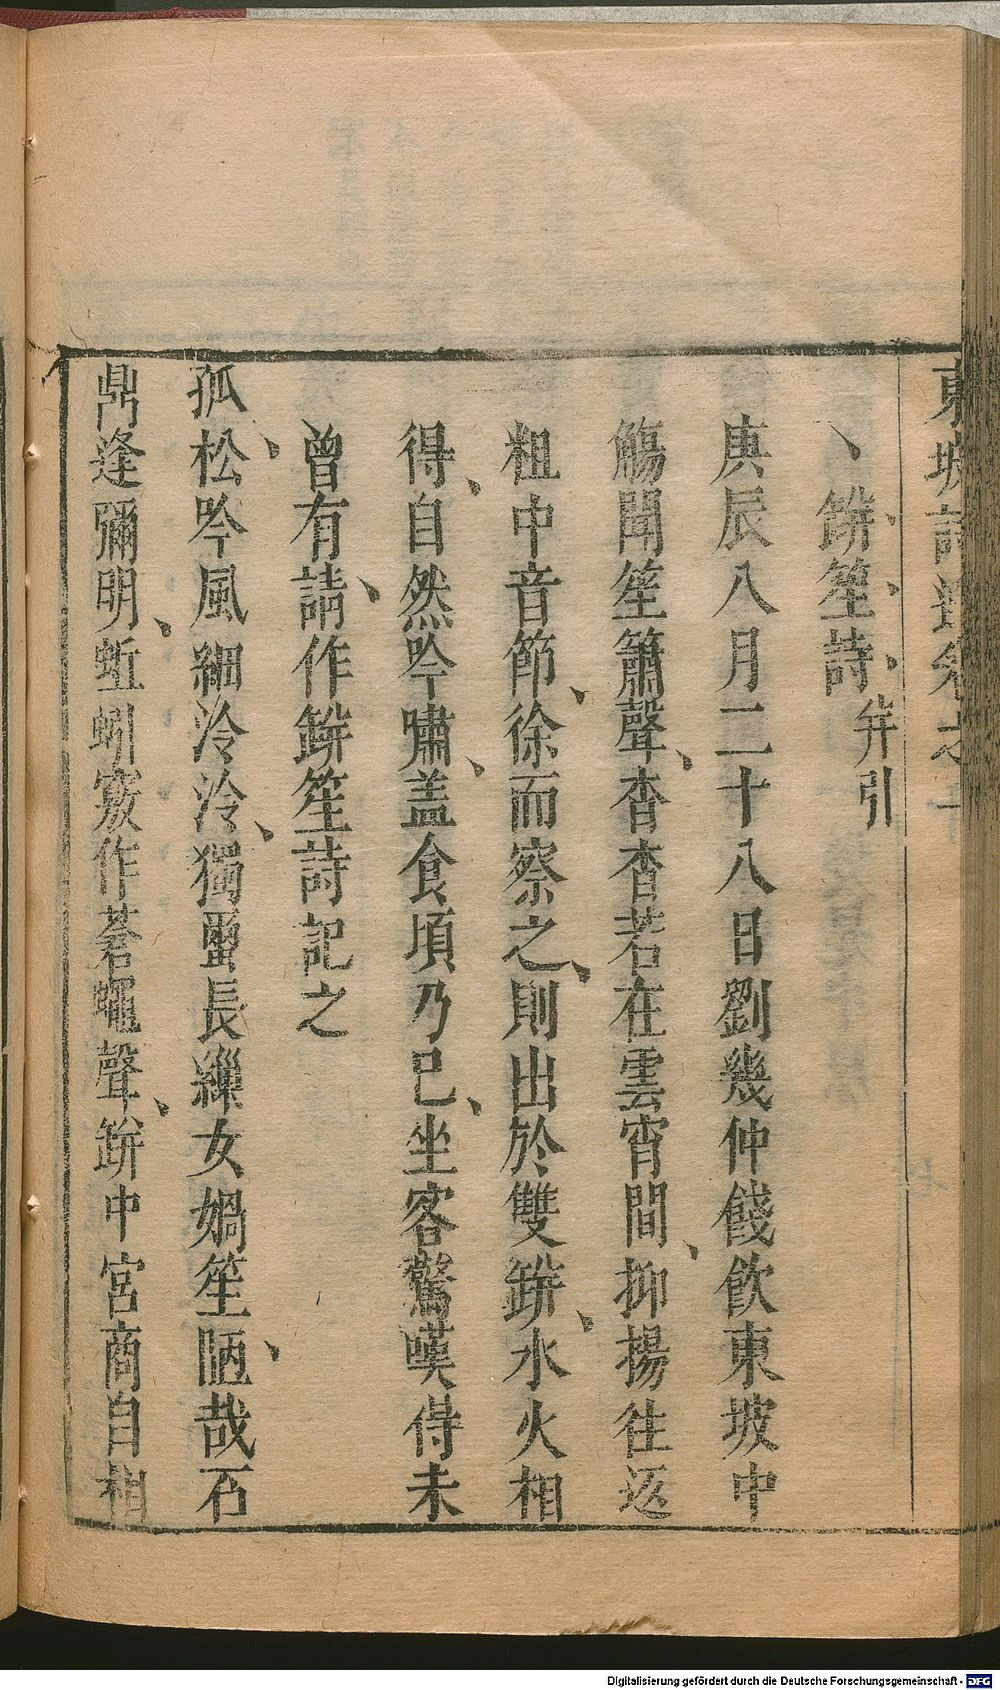 東坡詩選卷之十
缾笙詩 并引
庚辰八月二十八日劉幾仲餞飲東坡中
觴聞笙簫聲杳杳若在雲霄間抑揚往返
粗中音節徐而察之則出於雙缾水火相
得自然吟嘯盖食頃乃已坐客驚嘆得未
曾有請作缾笙詩記之
孤松吟風細泠泠獨蠒長繅女媧笙陋哉石
鼎逢彌明蚯蚓竅作蒼蠅聲缾中宮商自相
Digitalisierung gefördert durch die Deutsche Forschungsgemeinschaft - DFG